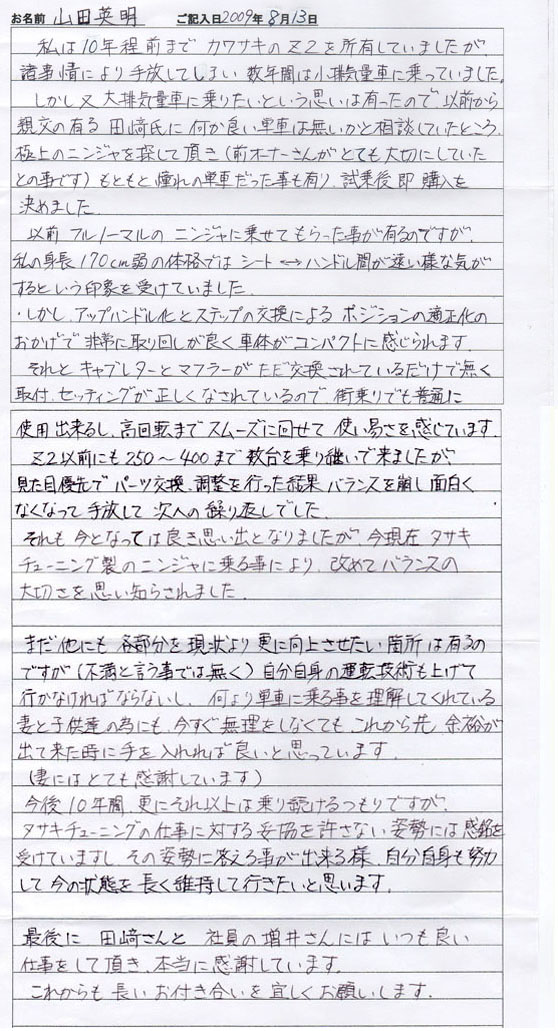 お名前 山田英明 ご記入日2009年8月13日
私は10年程前まで カワサキのZ2を所有していましたが、
諸事情により手放してしまい 数年間は小排気量車に乗っていました。
しかし又 大排気量車に乗りたいという思いは有ったので、以前から
親交の有る 田﨑氏に 何か良い単車は無いかと相談していたところ、
極上のニンジャを探して頂き（前オーナーさんがとても大切にしていた
との事です）もともと 憧れの単車だった事も有り、試乗後 即 購入を
決めました。
以前 フルノーマルの ニンジャに乗せてもらった事が有るのですが、
私の身長170cm弱の体格では シート↔ハンドル間が遠い様な気が
するという印象を受けていました。
・しかし、アップハンドル化とステップの交換による ポジションの適正化の
おかげで 非常に取り回しが良く 車体がコンパクトに感じられます。
それと キャブレターとマフラーが ただ交換されているだけで無く
取付、セッティングが正しくなされているので、街乗りでも普通に
使用出来るし、高回転まで スムーズに回せて 使い易さを感じています。
Z2以前にも 250～400まで 数台を乗り継いで来ましたが、
見た目優先で パーツ交換、調整を行った結果 バランスを崩し 面白く
なくなって 手放して 次への 繰り返しでした。
それも 今となっては 良き思い出となりましたが、今現在 タサキ
チューニング製の ニンジャに乗る事により、改めて バランスの
大切さを 思い知らされました。
まだ他にも 各部分を 現状より 更に向上させたい箇所は有るの
ですが（不満と言う事では無く）自分自身の 運転技術も上げて
行かなければならないし、何より単車に乗る事を 理解してくれている
妻と子供達の為にも、今すぐ 無理をしなくても、これから先 余裕が
出て来た時に 手を入れれば 良いと思っています。
（妻にはとても感謝しています）
今後10年間、更にそれ以上は 乗り続けるつもりですが、
タサキチューニングの仕事に対する 妥協を許さない 姿勢には 感銘を
受けていますし、その姿勢に答える事が出来る様、自分自身も努力
して 今の状態を 長く維持して行きたいと思います。
最後に 田﨑さんと 社員の増井さんには いつも良い
仕事をして頂き、本当に感謝しています。
これからも 長い お付き合いを 宜しくお願いします。